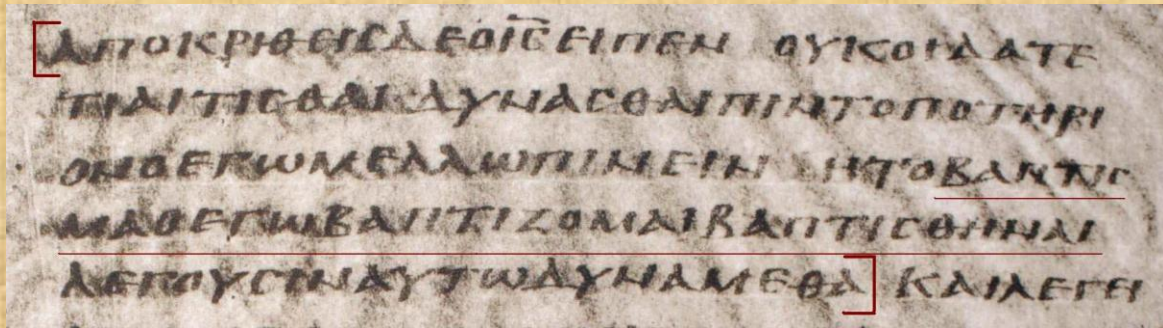 ΑΠΟΚΡΙΘΕΙϹΔΕΟΙ̅Ϲ̅ΕΙΠΕΝ ΟΥΚΟΙΔΑΤΕ
ΤΙΑΙΤΙϹΘΑΙ ΔΥΝΑϹΘΑΙΠΙΝΤΟΠΟΤΗΡΙ
ΟΝΟΕΓΩΜΕΛΛΩΠΙΝΕΙΝ ΗΤΟΒΑΠΤΙϹ
ΜΑΟΕΓΩΒΑΠΤΙΖΟΜΑΙΒΑΠΤΙϹΘΗΝΑΙ
ΛΕΓΟΥϹΙΝΑΥΤΩΔΥΝΑΜΕΘΑ ΚΑΙΛΕΓΕΙ